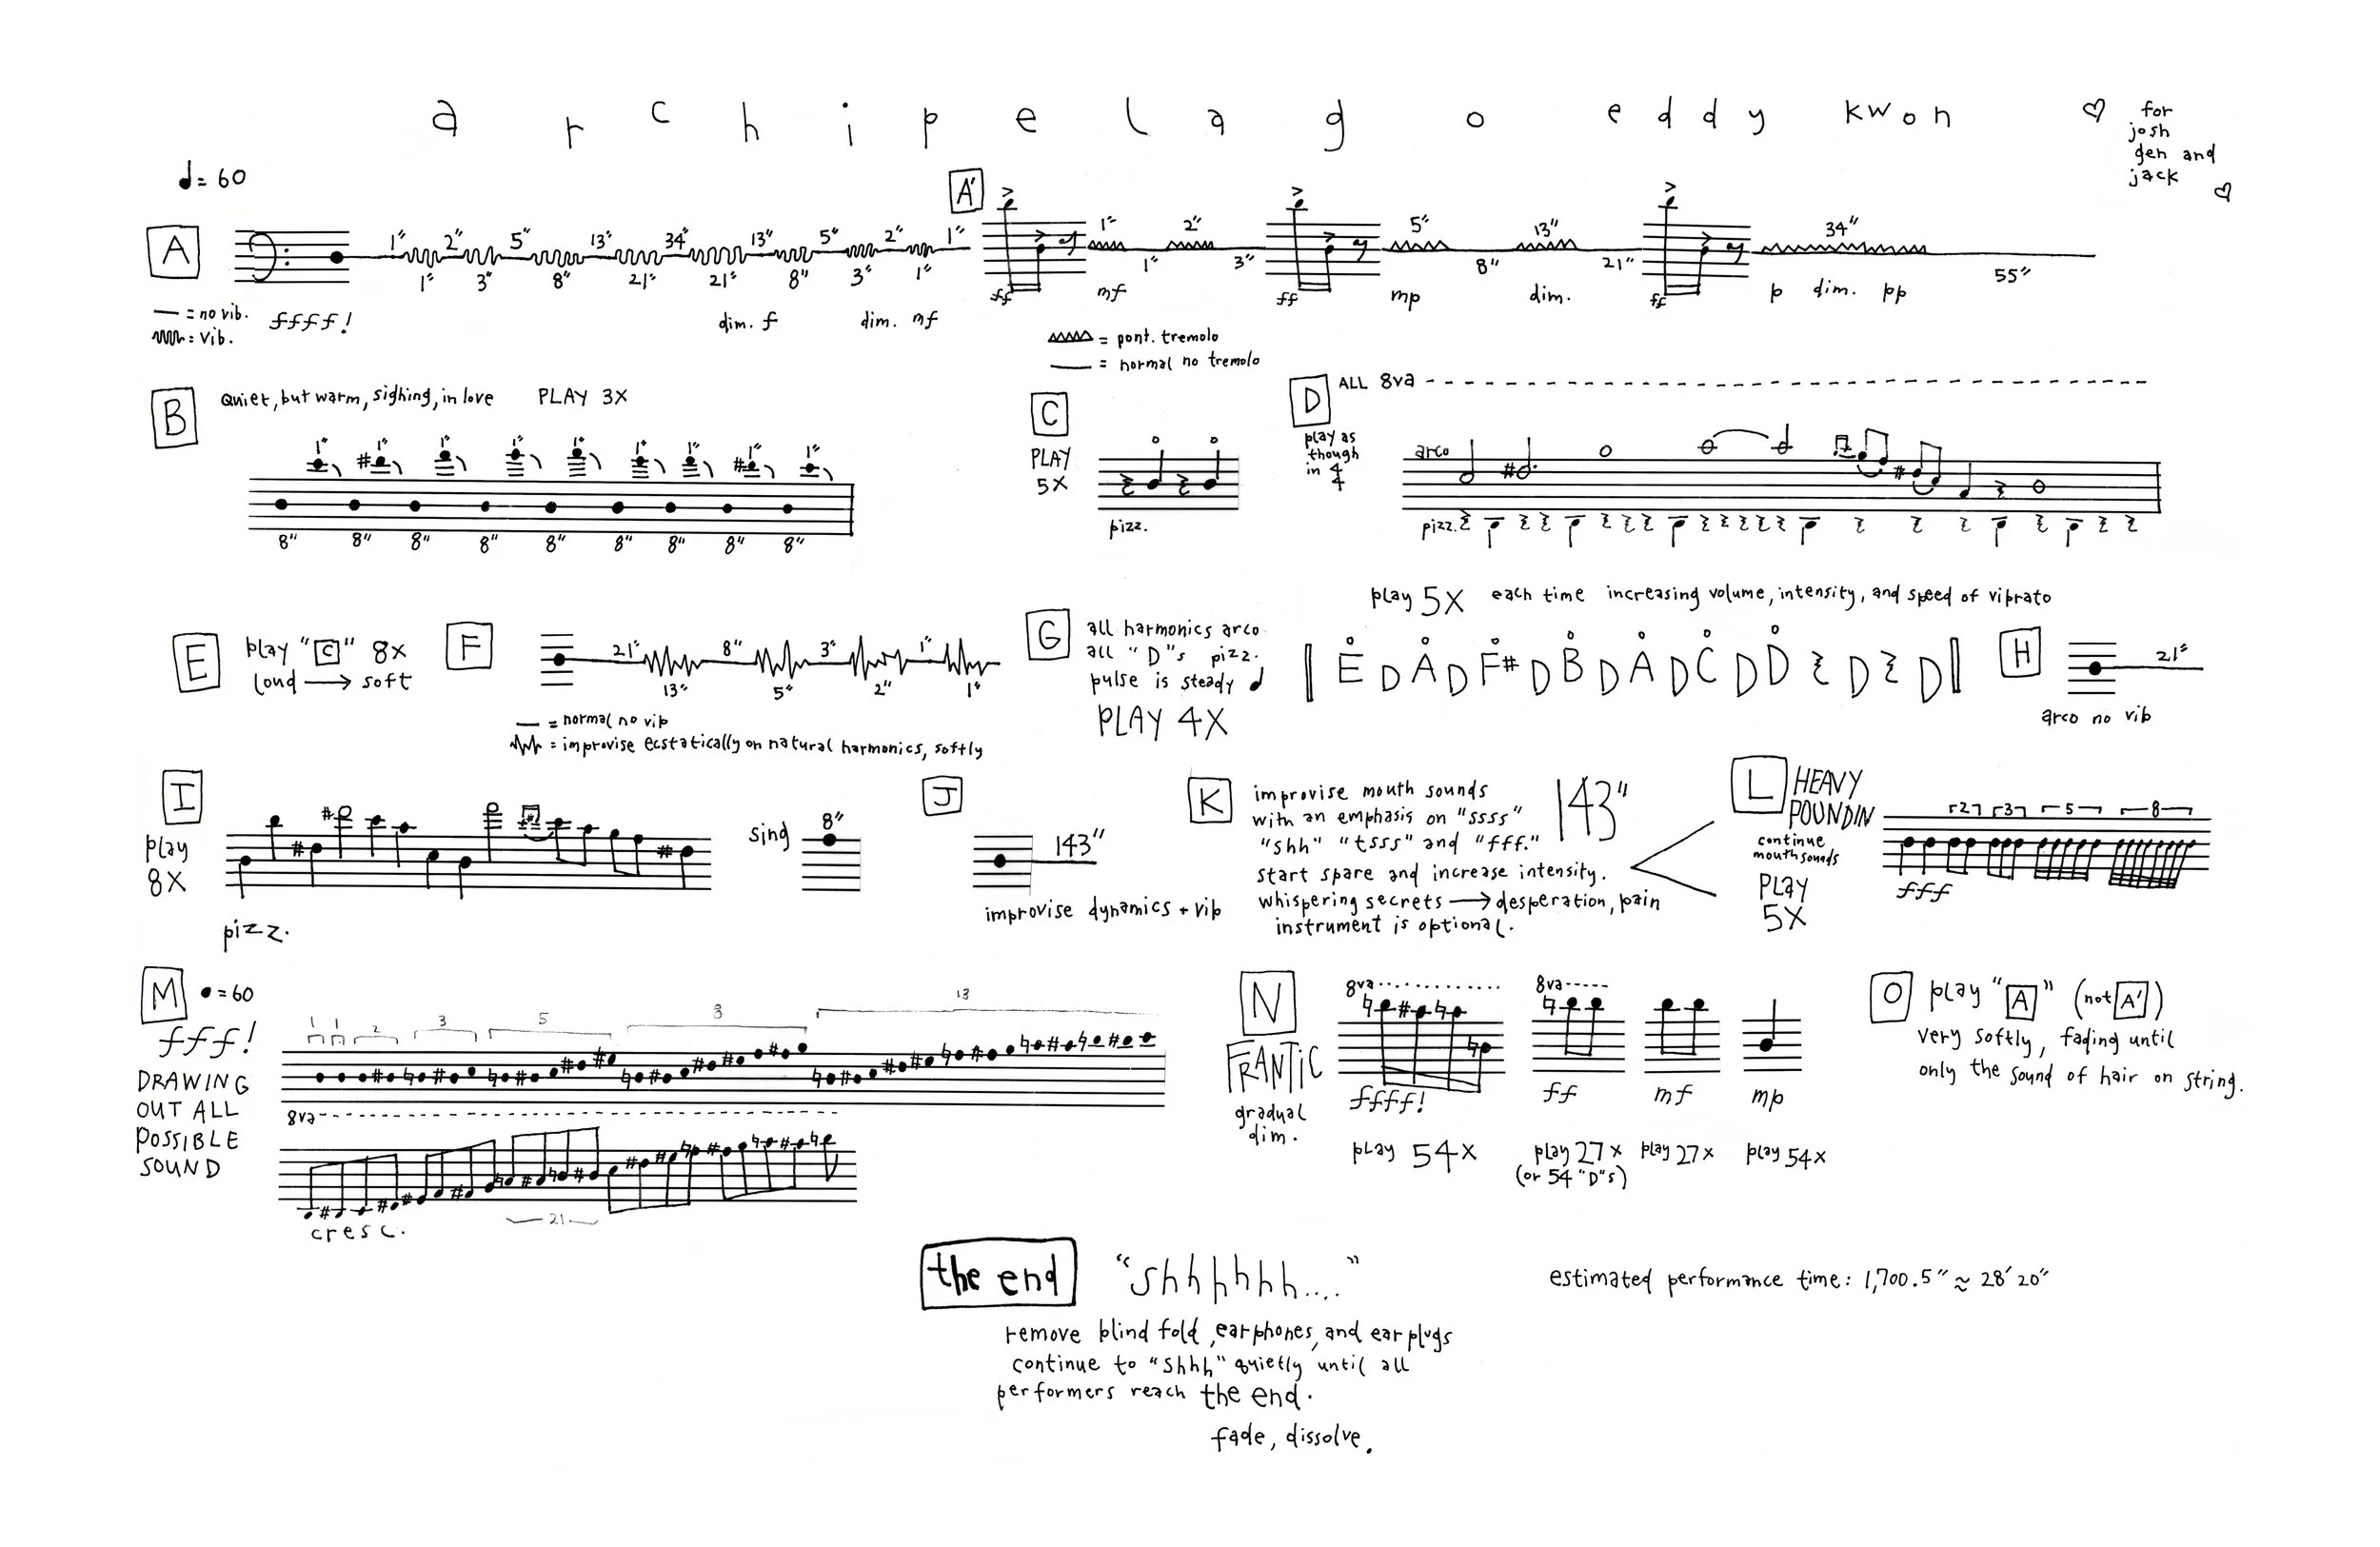 archipelago eddy kwon ♡ for
josh
gen and
jack ♡
♩= 60
A
1" 2" 5" 13" 34" 13" 5" 2" 1"
1" 3" 8" 21" 21" 8" 3" 1"
— = no vib. ffff! dim. f dim. mf
= vib.
A'
1" 2" 5" 13" 34"
1" 3" 8" 21" 55"
ff mf ff mp dim. ff p dim. pp
= pont. tremolo
— = normal no tremolo
B Quiet, but warm, sighing, in love PLAY 3X
1" 1" 1" 1" 1" 1" 1" 1" 1"
8" 8" 8" 8" 8" 8" 8" 8" 8"
C
PLAY
5X
pizz.
D ALL 8va
play as
though
in 4/4
arco
pizz.
play 5X each time increasing volume, intensity, and speed of vibrato
E play "C" 8x
loud → soft
F
21" 8" 3" 1"
13" 5" 2" 1"
— = normal no vib
= improvise ecstatically on natural harmonics, softly
G all harmonics arco
all "D"s pizz.
pulse is steady ♩
PLAY 4X
E D A D F# D B D A D C D D D D
H
21"
arco no vib
I
play
8X
pizz.
sing 8"
J
143"
improvise dynamics + vib
K improvise mouth sounds
with an emphasis on "ssss"
"shh" "tsss" and "fff."
143"
start spare and increase intensity.
whispering secrets → desperation, pain
instrument is optional.
L HEAVY
POUNDIN
continue
mouth sounds
PLAY
5X
2 3 5 8
fff
M = 60
fff!
DRAWING
OUT ALL
POSSIBLE
SOUND
1 1 2 3 5 8 13
8va
21
cresc.
N
FRANTIC
gradual
dim.
8va 8va
ffff! ff mf mp
play 54x play 27x play 27x play 54x
(or 54 "D"s)
O play "A" (not A')
very softly, fading until
only the sound of hair on string.
the end "shhhhhh...."
estimated performance time: 1,700.5" ≈ 28'20"
remove blind fold, earphones, and earplugs
continue to "shhh" quietly until all
performers reach the end.
fade, dissolve.